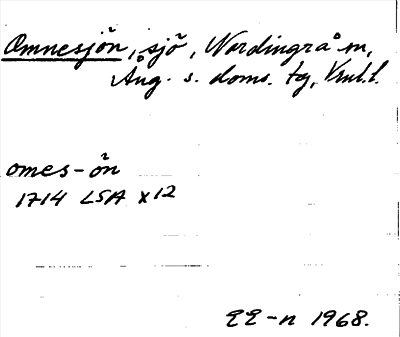 Omnesjön, sjö, Nordingrå sn,
Ång. s. doms. tg, Vnl. l.
omes-ön
1714 LSA X12
EE-n 1968.